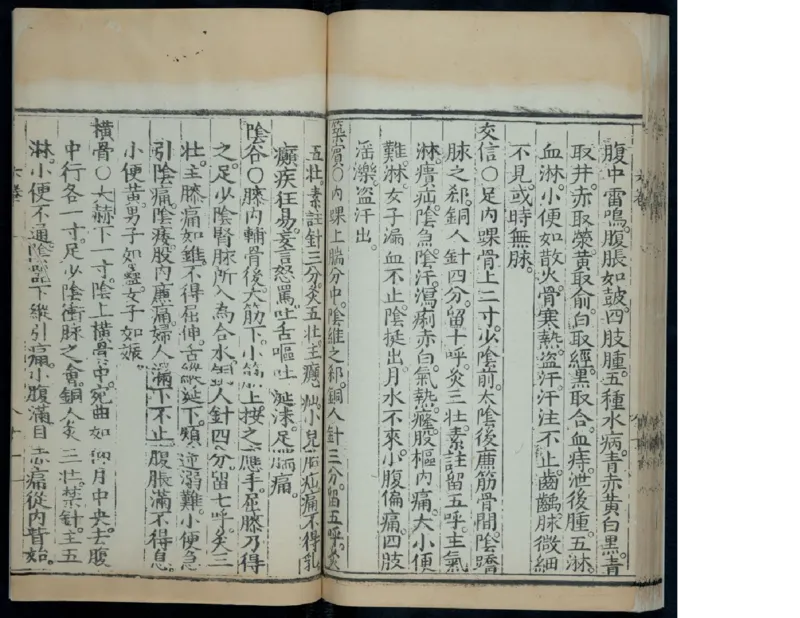 腹中雷鳴。腹脹如皷。四肢腫。五種水病。青赤黃白黑。青
取井。赤取滎。黃取俞。白取經。黑取合。血痔。泄後腫。五淋。
血淋。小便如散火。骨寒熱。盜汗。汗注不止。齒齲。脉微細
不見。或時無脉。
交信〇足內踝骨上二寸。少陰前太陰後亷筋骨間。陰蹻
脉之郄。銅人針四分。留十呼。炙三壯。素註留五呼。主氣
淋。㿉疝。陰急。陰汗。瀉痢赤白。氣熱癃。股樞內痛。大小便
難。淋。女子漏血不止。陰挺出。月水不來。小腹偏痛。四肢
淫濼。盜汗出。
築賔〇內踝上腨分中。陰維之郄。銅人針三分。留五呼。炙
五壯。素註針三分。炙五壯。主癲疝。小兒胎疝。痛不得乳。
癲疾狂易。妄言怒罵。吐舌。嘔吐涎沫。足腨痛。
陰谷〇膝內輔骨後。大筋下。小筋上。按之應手。屈膝乃得
之。足少陰腎脉所入為合水。銅人針四分。留七呼。炙三
壯。主膝痛如錐。不得屈伸。舌縱涎下。煩逆。溺難。小便急
引陰痛。陰痿。股內亷痛。婦人漏下不止。腹脹滿不得息。
小便黃。男子如蠱。女子如娠。
橫骨〇大赫下一寸。陰上橫骨中。宛曲如仰月中央。去腹
中行各一寸。足少陰衝脉之會。銅人炙三壯。禁針。主五
淋。小便不通。陰器下縱引痛。小腹滿。目赤痛從內眥始。